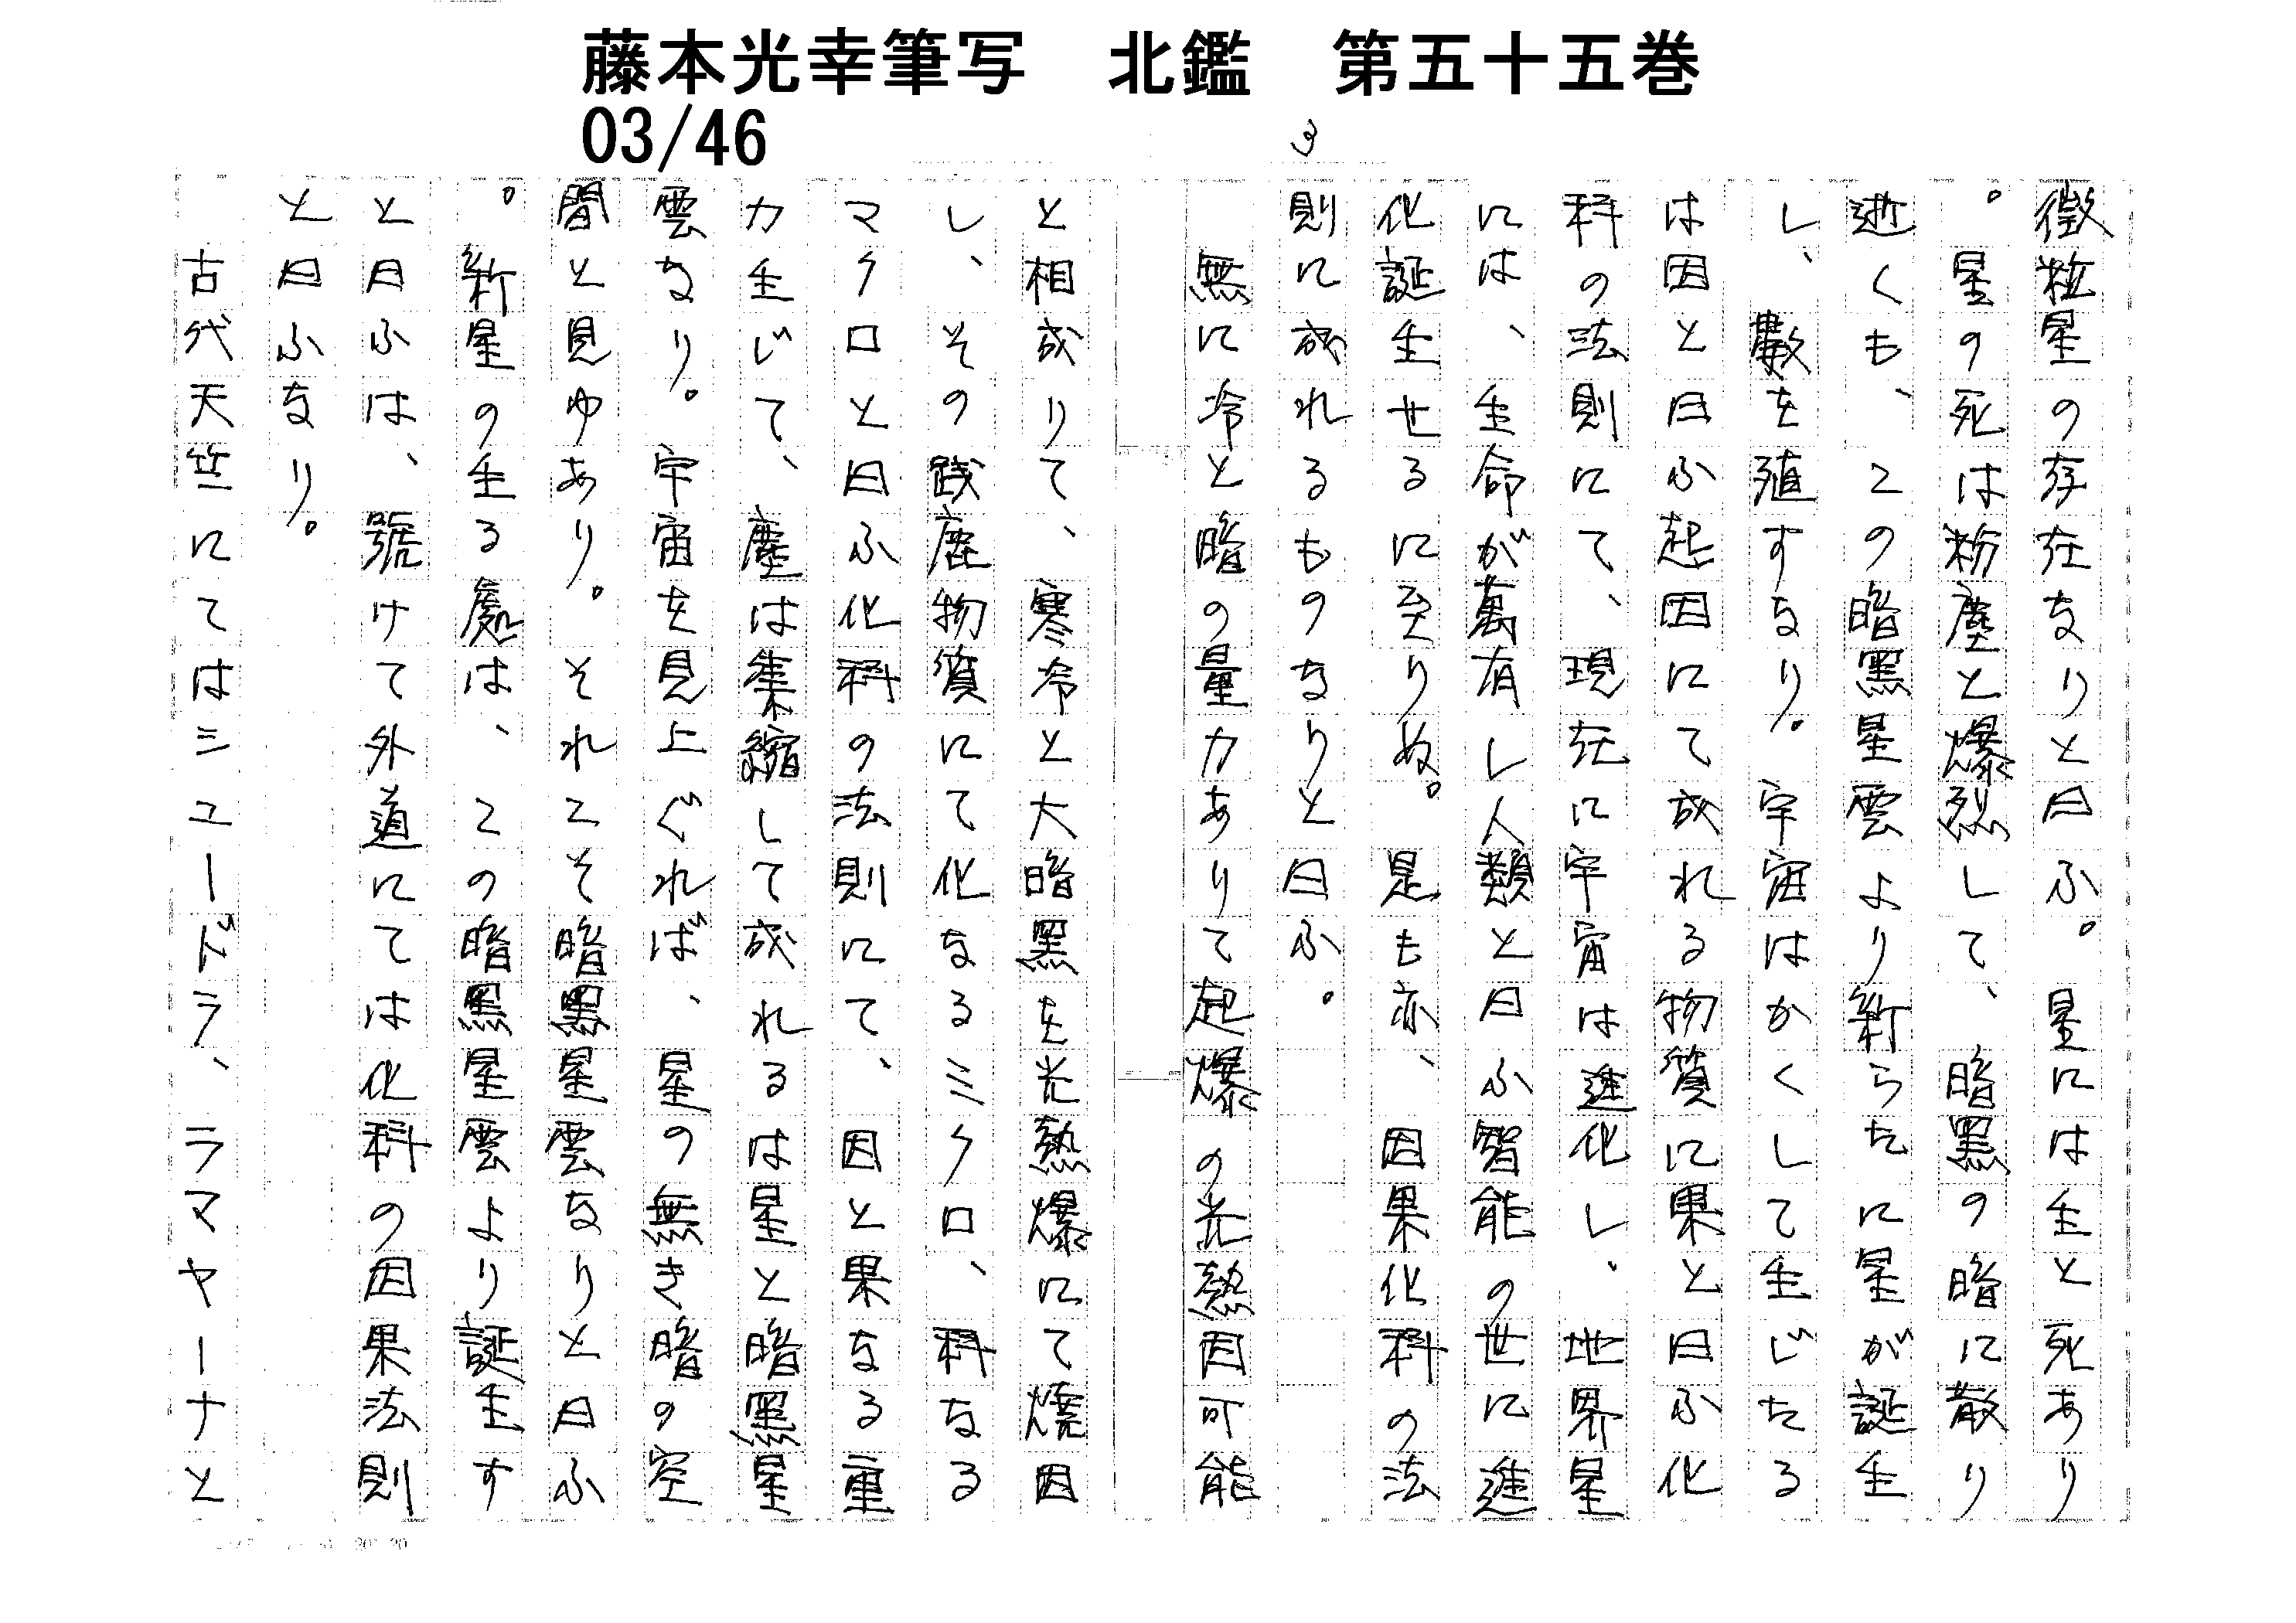 藤本光幸筆写　北鑑　第五十五巻
03/46
3
徴粒星の存在なりと曰ふ。星には生と死あり
。星の死は粉塵と爆烈して、暗黒の暗に散り
逝くも、この暗黒星雲より新らたに星が誕生
し、數を殖すなり。宇宙はかくして生じたる
は因と曰ふ起因にて成れる物質に果と曰ふ化
科の法則にて、現在に宇宙は進化し、地界星
には、生命が萬有し人類と曰ふ智能の世に進
化誕生せるに至りぬ。是も亦、因果化科の法
則に成れるものなりと曰ふ。
無に冷と暗の量力ありて起爆の光熱因可能
と相成りて、寒冷と大暗黒を光熱爆にて燒因
し、その践塵物質にて化なるミクロ、科なる
マクロと曰ふ化科の法則にて、因と果なる重
力生じて、塵は集縮して成れるは星と暗黒星
雲なり。宇宙を見上ぐれば、星の無き暗の空
間と見ゆあり。それこそ暗黒星雲なりと曰ふ
。新星の生る處は、この暗黒星雲より誕生す
と曰ふは、號けて外道にては化科の因果法則
と曰ふなり。
古代天竺にてはシュードラ、ラマヤーナと